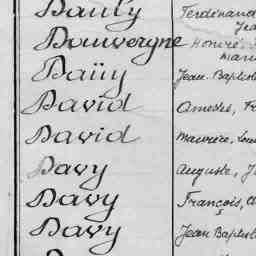 Dauty Ferdinand
Dauvergne Honoré
Daüy Jean-Baptiste
David Amédée,
David Maurice, Lou
Davy Auguste, J
Davy François, A
Davy Jean Baptist